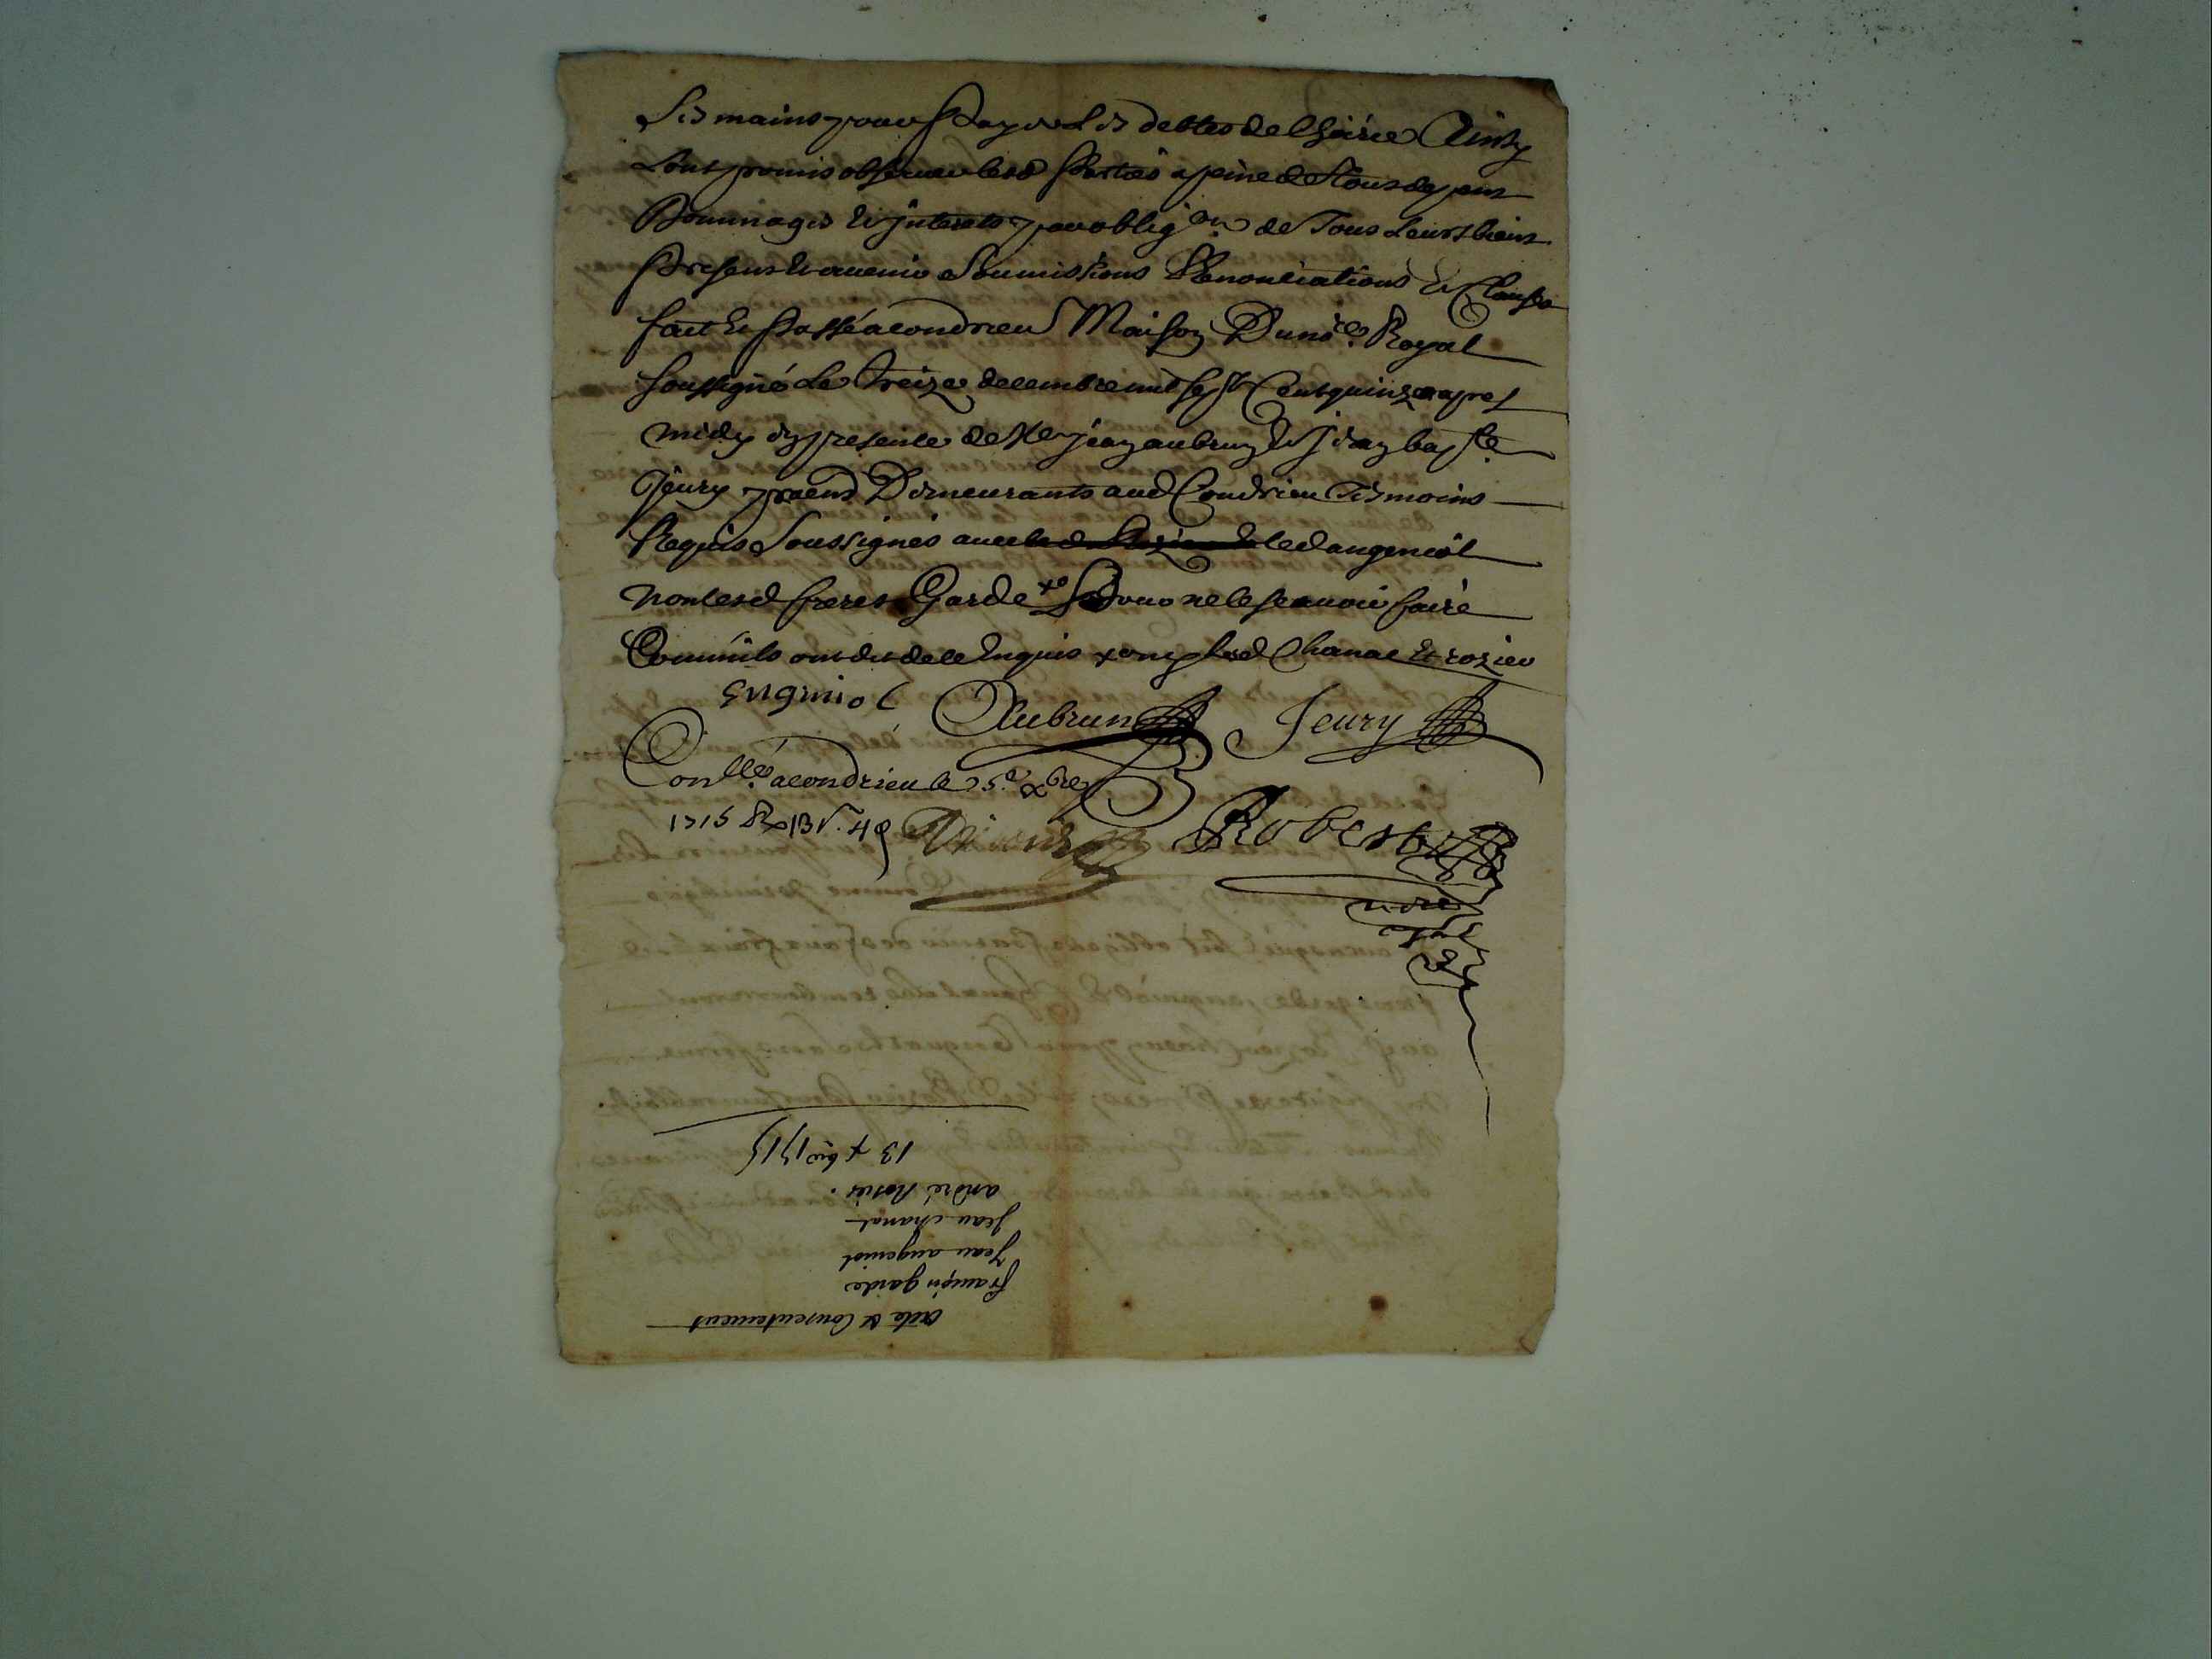 Ses mains pour payer Les debtes de l'hoirie Ainsy
Lont promis observer lesd parties a peine de tous depens
Dommages et jnterets par oblig.on de Tous Leurs biens
presens et avenir Soumissions Renonciations et Clauses
fait et passé a condrieu Maison Du no.re Royal
soussigné Le treize decembre mil sept Cent quinze apres
midy en presence de Me jean aubrun et jean bap.te
Jeury Demeurants aud Condrieu Tesmoins
Requis Soussignés avec led augeniol
non lesd freres Garde ne le scavoir faire
Comm'ils ont dit de ce Enquis lesd Chanal Et rozier
Engniol Aubrun Jeury
Con.llé a condrieu le 15.e xbre
1715 R Robert
no.re
Ral
acte de Consentement
françois garde
Jean augeniol
Jean chanal
andré Rosier.
13 xbre 1715